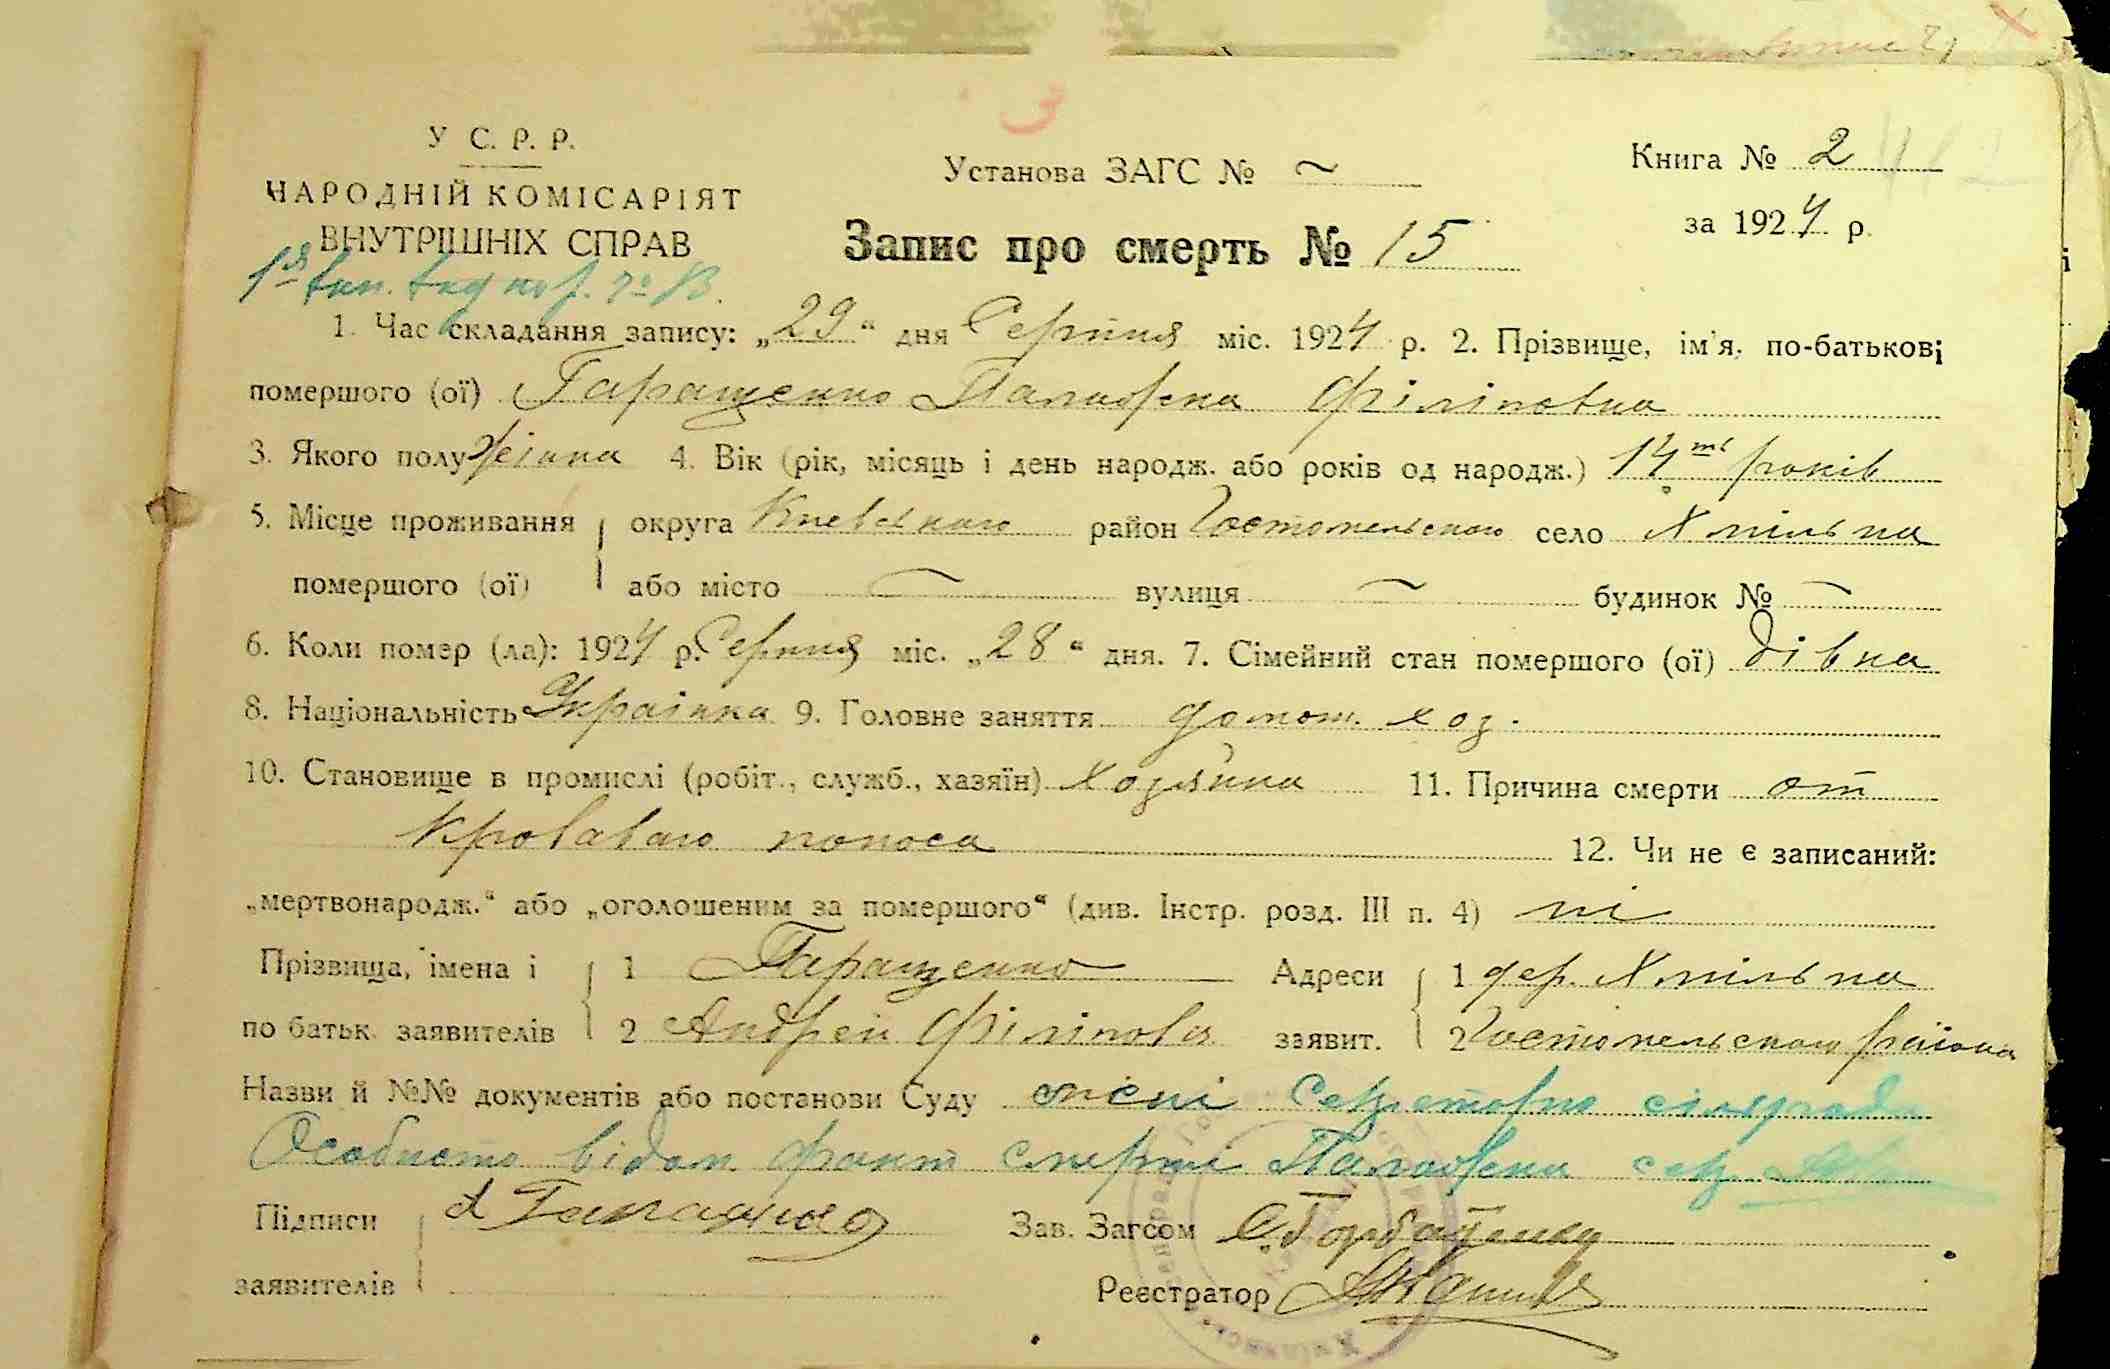 У С. Р. Р.
НАРОДНІЙ КОМІСАРІЯТ
ВНУТРІШНІХ СПРАВ
Установа ЗАГС № ~
Книга № 2
за 1924 р.
Запис про смерть № 15
1. Час складання запису: „29“ дня Серпня міс. 1924 р. 2. Прізвище, ім'я, по-батькові
помершого (ої) Гаращенко Палажка Філіповна
3. Якого полу жінка 4. Вік (рік, місяць і день народж. або років од народж.) 14ть років
5. Місце проживання округа Київського район Гостомельського село Хмільна
помершого (ої) або місто — вулиця — будинок № —
6. Коли помер (ла): 1924 р. Серпня міс. „28“ дня. 7. Сімейний стан помершого (ої) дівка
8. Національність Українка 9. Головне заняття домот. хоз.
10. Становище в промислі (робіт., служб., хазяїн) хозяйка 11. Причина смерти от
кровавого поноса 12. Чи не є записаний:
„мертвонародж.“ або „оголошеним за помершого“ (див. Інстр. розд. III п. 4) ні
Прізвища, імена і 1 Гаращенко Адреси 1 дер. Хмільна
по батьк. заявителів 2 Андрей Філіпова заявит. 2 Гостомельского района
Назви й №№ документів або постанови Суду мені
Особисто відом факт смерті сек.
Підписи А Гаращенко Зав. Загсом С. Горбаченко
заявителів Реєстратор